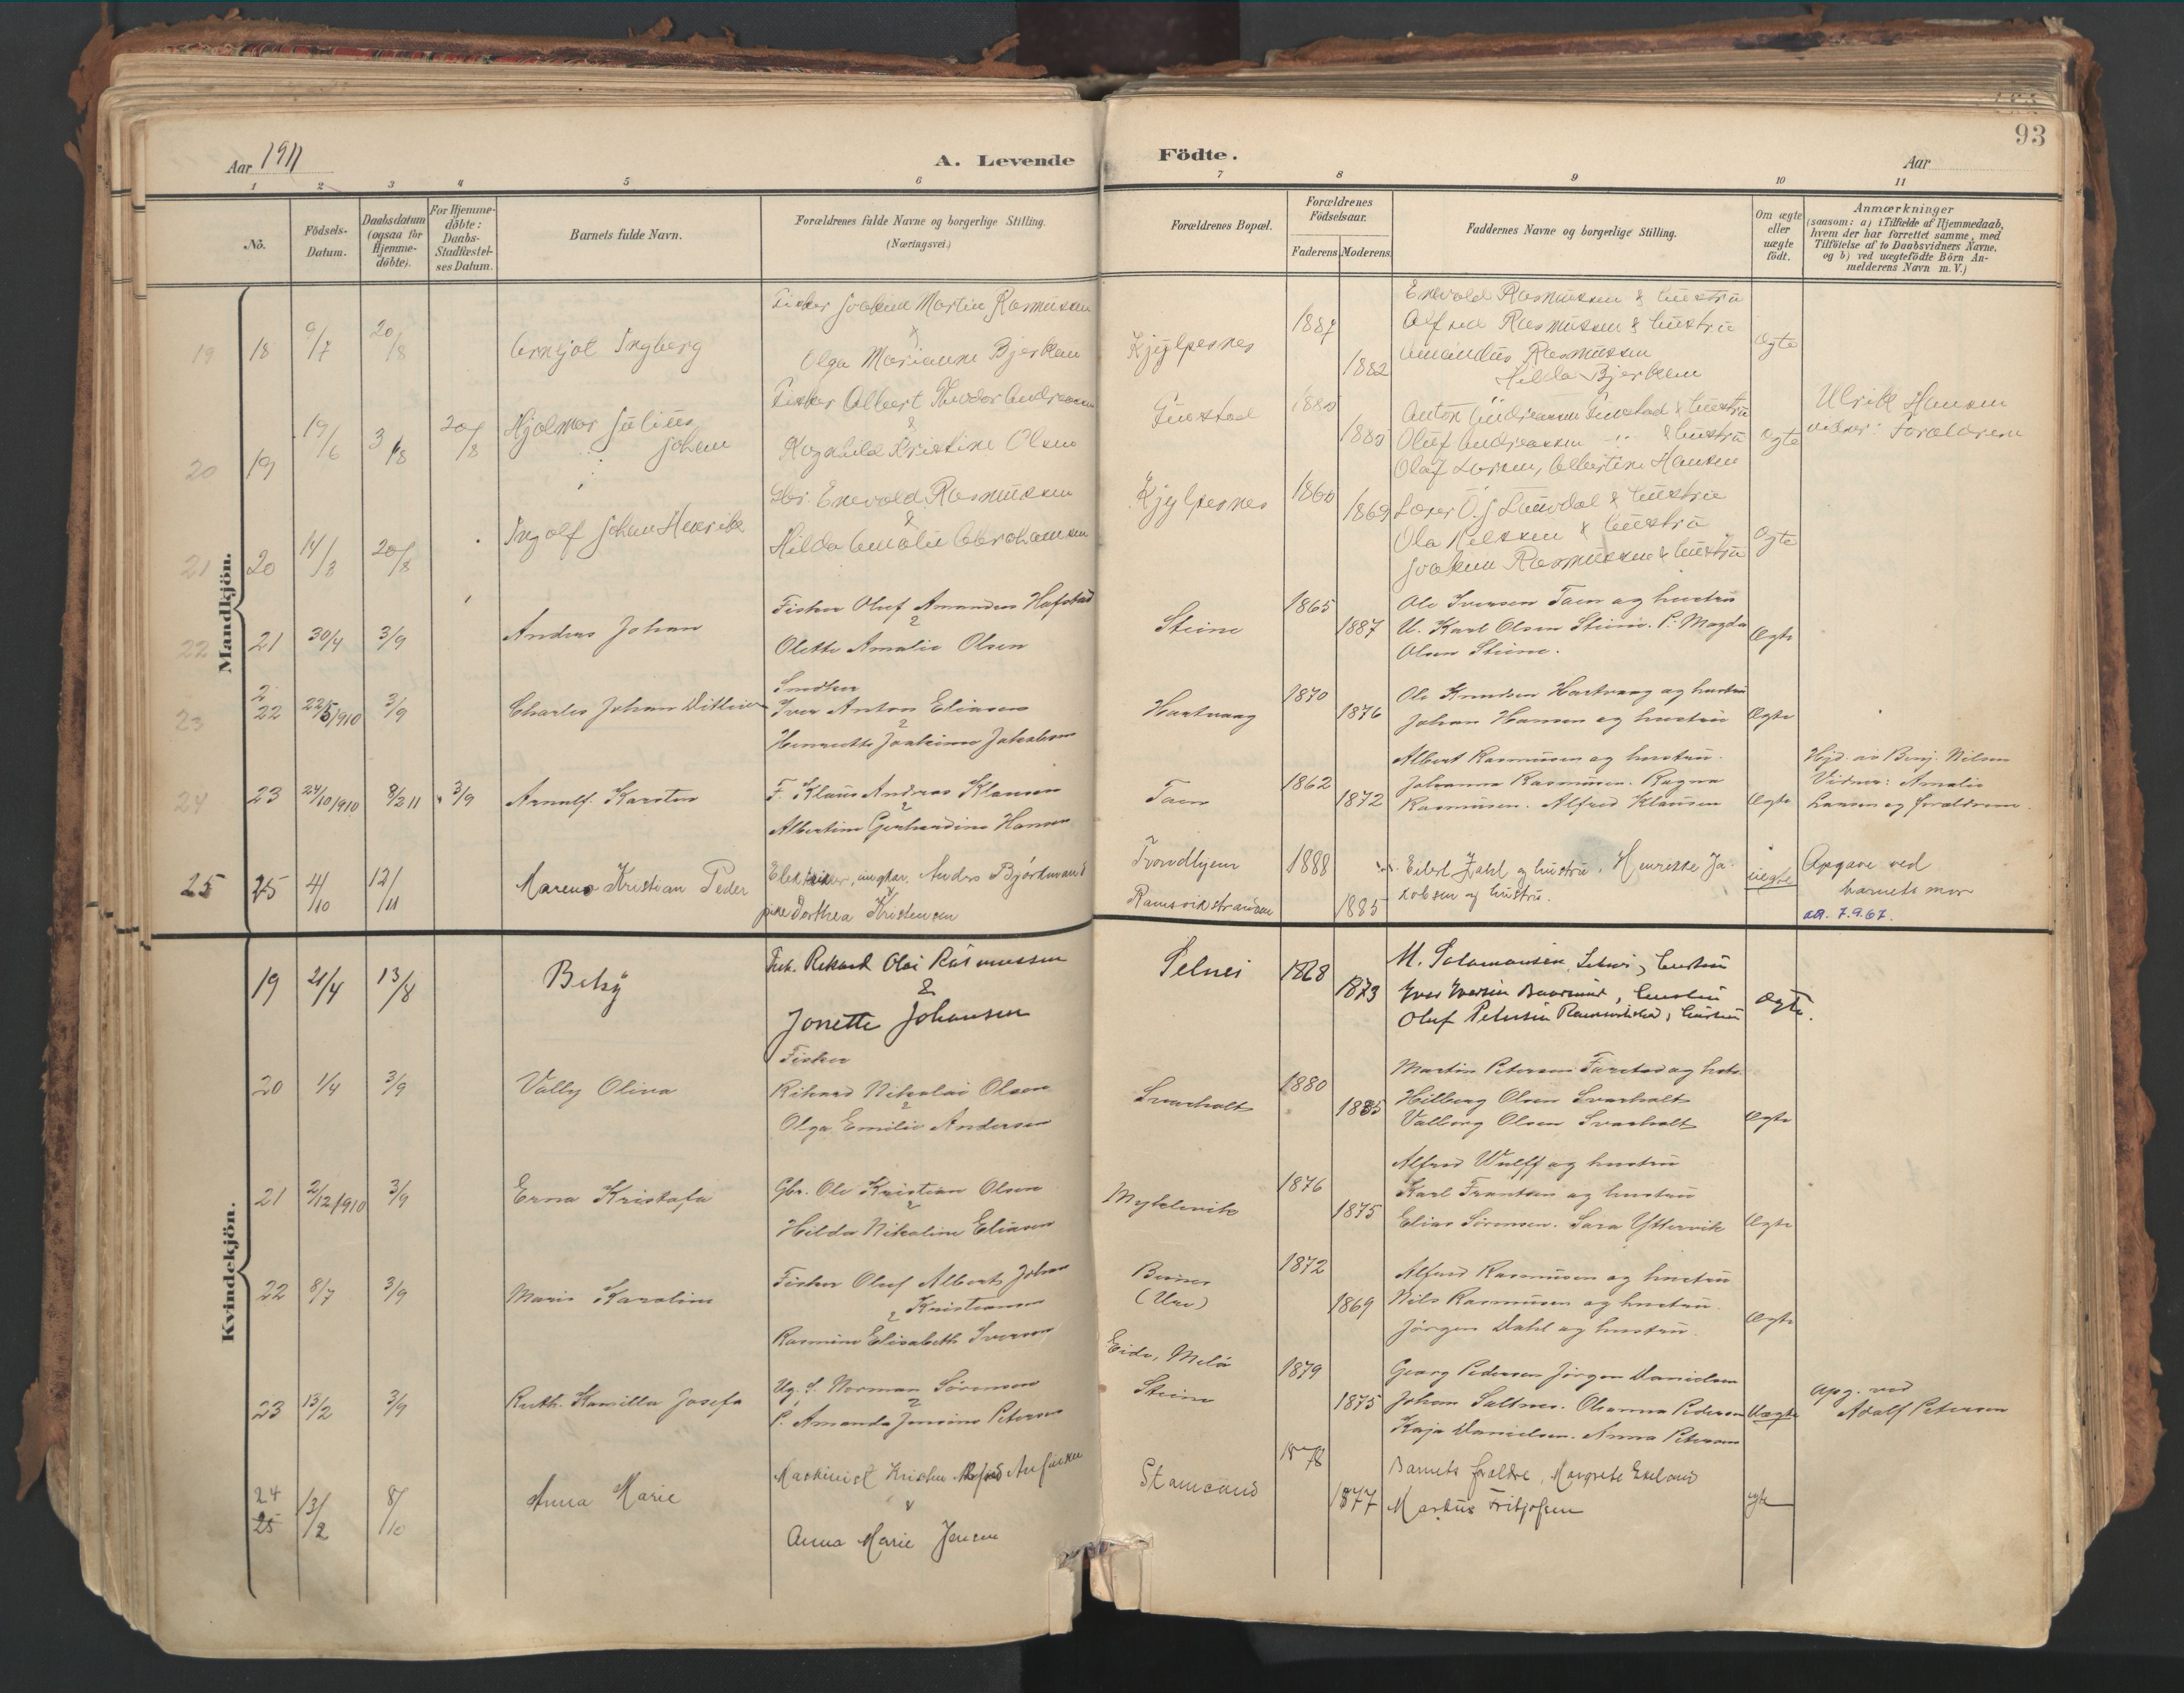 93
Aar 1911
A. Levende
Födte.
Aar
1 2 3 4 5 6 7 8 9 10 11
No.
Födsels-
Datum.
Daabsdatum
(ogsaa for
Hjemme-
döbte).
For Hjemme-
döbte:
Daabs-
Stadfæstel-
ses Datum.
Barnets fulde Navn.
Forældrenes fulde Navne og borgerlige Stilling.
(Næringsvei.)
Forældrenes Bopæl.
Forældrenes
Födselsaar.
Faderens Moderens
Faddernes Navne og borgerlige Stilling.
Om ægte
eller
uægte
födt.
Anmærkninger
(saasom: a) i Tilfælde af Hjemmedaab,
hvem der har forrettet samme, med
Tilföielse af to Daabsvidners Navne,
og b) ved uægtefödte Börn An-
melderens Navn m. V.)
Mandkjön.
19 18 9/7 20/8
Arnljot Ingberg
Fisker Joakim Martin Rasmussen
&
Olga Marianne Bjerkan
1887
1882
Enevold Rasmussen & hustru
Alfred Rasmussen & hustru
Amandus Rasmussen
Hilda Bjerkan
Ægte
20 19 19/6 3/8 20/8
Hjalmar Julius
Johan
Fisker Albert Theodor Andreassen
&
Ragnhild Kristine Olsen
Finstad
1885
Anton Andreassen Finstad & hustru
Oluf Andreassen -"- & hustru
Olaf Larsen, Albertine Hansen
Ægte
Ulrik Hansen
vidner: Forældrene
21 20 14/3 20/8
Ingolf Johan Henrik
Gbr. Enevold Rasmussen
&
Hilda Amalie Abrahamsen
1860
1869
Lærer O. J. Lauvdal & hustru
Ola Nilssen & hustru
Joakim Rasmussen & hustru
Ægte
22 21 30/4 3/9
Anders Johan
Fisker Oluf Amandus Hafstad
&
Olette Amalie Olsen
Steine
1865
1887
Ole Iversen Taen og hustru
U. Karl Olsen Steine. P. Magda
Olsen Steine.
Ægte
23 22 22/5 1910 3/9
Charles Johan Ditlev
Smedker
Iver Anton Eliasen
&
Henriette Joakime Jakobsen
Hartvaag
1870
1876
Ole Knudsen Hartvaag og hustru
Johan Hansen og hustru
Ægte
24 23 24/10 1910 8/2 11 3/9
Arnulf Karsten
F. Klaus Andreas Klausen
&
Albertine Gerhardine Hansen
Taen
1862
1872
Albert Rasmussen og hustru.
Johanna Rasmussen. Ragna
Rasmussen. Alfred Klausen
Ægte
Hjd. av Benj. Nilsen
Vidner: Amalie
Larsen og forældrene.
25 25 4/10 12/11
Mareno Kristian Peder
Elektriker, ungkar, Anders Björkmand
&
pike Dorthea Kristensen
Trondhjem
Ramsvikstranden
1888
1885
Eilert Zahl og hustru, Henrikke Ja-
kobsen og hustru.
uegte
Opgave ved
barnets mor
7.9.67.
Kvindekjön.
19 21/4 13/8
Betsy
Fisk. Rikard Olai Rasmussen
&
Jonette Johansen
Selnes
1868
1873
M. Salamonsen, Selnes, hustru
Iver Iversen, hustru
Oluf Petersen, hustru
Ægte.
20 1/4 3/9
Vally Oliva
Fisker
Rikard Nikolai Olsen
&
Olga Emilie Andersen
Svarholt
1880
1885
Martin Petersen Farstad og hstr.
Hilberg Olsen Svarholt
Valborg Olsen Svarholt
Ægte
21 2/12 1910 3/9
Erna Kristofa
Gbr. Ole Kristian Olsen
&
Hilda Nikoline Eliasen
Myklevik
1876
1875
Alfred Wulff og hustru
Karl Frantsen og hustru
Elias Sörensen. Sara Yttervik
Ægte
22 8/7 3/9
Marie Karoline
Fisker Oluf Alberts Johan
Kristiansen
&
Rasmine Elisabeth Iversen
(Ure)
1872
1869
Alfred Rasmussen og hustru
Nils Rasmussen og hustru.
Jörgen Dahl og hustru.
Ægte
23 13/2 3/9
Ruth Kamilla Josefa
Ug. S. Norman Sörensen
&
P. Amanda Jensine Petersen
Eide, Melö
Steine
1879
1875
Georg Pedersen Jörgen Danielsen
Johan Saltnes. Oleanna Pedersen
Kaja Danielsen. Anna Petersen
Uægte
Opg. ved
Adolf Petersen
24
25 13/2 8/10
Anna Marie
Maskinist Kristen Anfinsen
&
Anna Marie Jensen
Stamsund
1878
1877
Barnets forældre, Margrete Eseland
Markus Fritjofsen
ægte